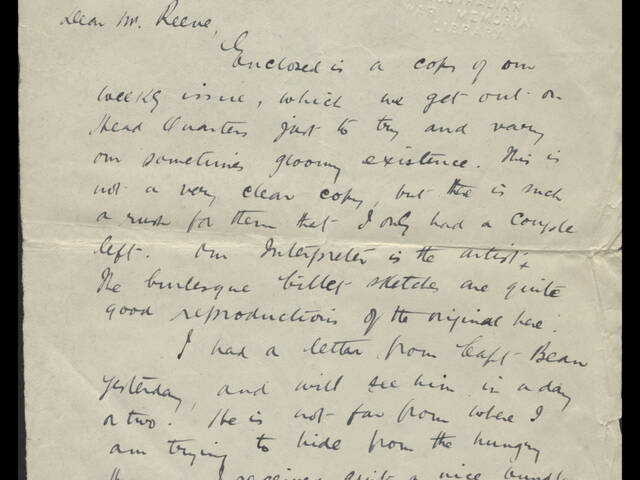 AUSTRALIAN
WAR MEMORIAL
LIBRARY
Dear Mr. Reeve,
Enclosed is a copy of our
weekly issue, which we get out on
Head Quarters just to try and vary
our sometimes gloomy existence. This is
not a very clear copy, but there is such
a rush for them that I only had a couple
left. Our Interpreter is the artist &
the burlesque billet sketches are quite
good reproductions of the original here.
I had a letter from Capt Bean
yesterday, and will see him in a day
or two. He is not far from where I
am trying to hide from the hungry
I received quite a nice bundle